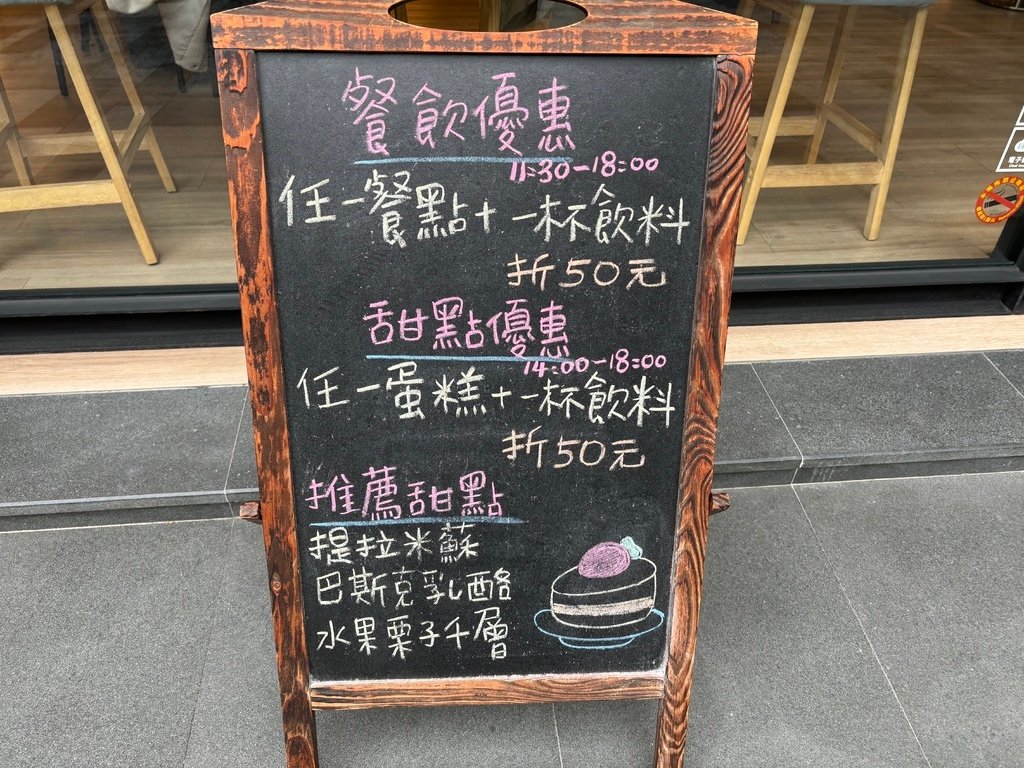 餐飲優惠
11:30-18:00
任一餐點+一杯飲料
折50元
甜點優惠
14:00-18:00
任一蛋糕+一杯飲料
折50元
推薦甜點
提拉米蘇
巴斯克乳酪
水果栗子千層